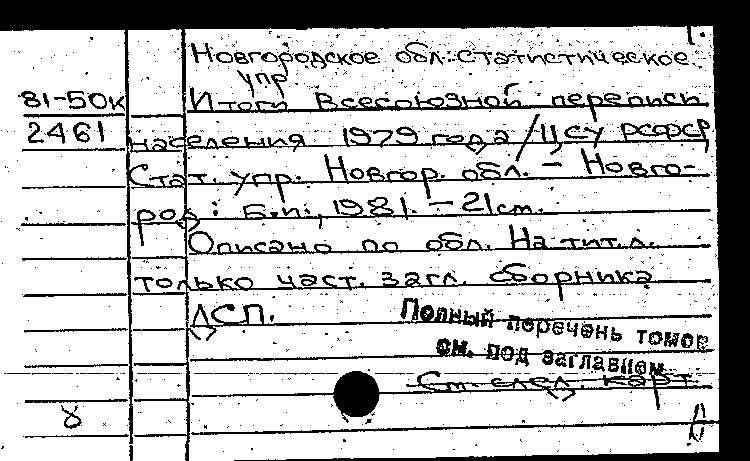 1.
Новгородское обл. статистическое
упр
81-50к Итоги Всесоюзной переписи
2461 населения 1979 года / ЦСУ РСФСР,
Стат. упр. Новгор. обл. – Новго-
род: Б.и., 1981. – 21 см.
Описано по обл. На тит. л.
только част. загл. сборника
ДСП.
Полный перечень томов
см. под заглавием
См. след. карт.